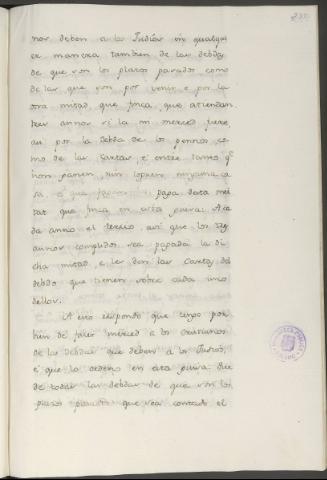 nos deben a los Judíos en qualqui
er manera tambien de las debdas
de que son los plazos pasados como
de las que son por venir e por la
otra mitad que finca, que atiendan
tres annos si la mi merced fuere
asi por la debda de los pennos, co
mo de las cartas, e entre tanto q
non panen, nin logren ninguna co
sa, e que paguen papa desta mei
tat que finca en esta guisa: Ca
da anno el tercio, asi que los tres
annos complidos sea pagada la di
cha mitad, e les den las cartas del
debdo que tienen sobre cada uno
dellos.
A esto respondo que tengo por
bien de facer merced a los cristianos
de las debdas que deben a los Judios,
e que la ordeno en esta guisa: que
de todas las debdas de que son los
plazos pasados que sea contado el